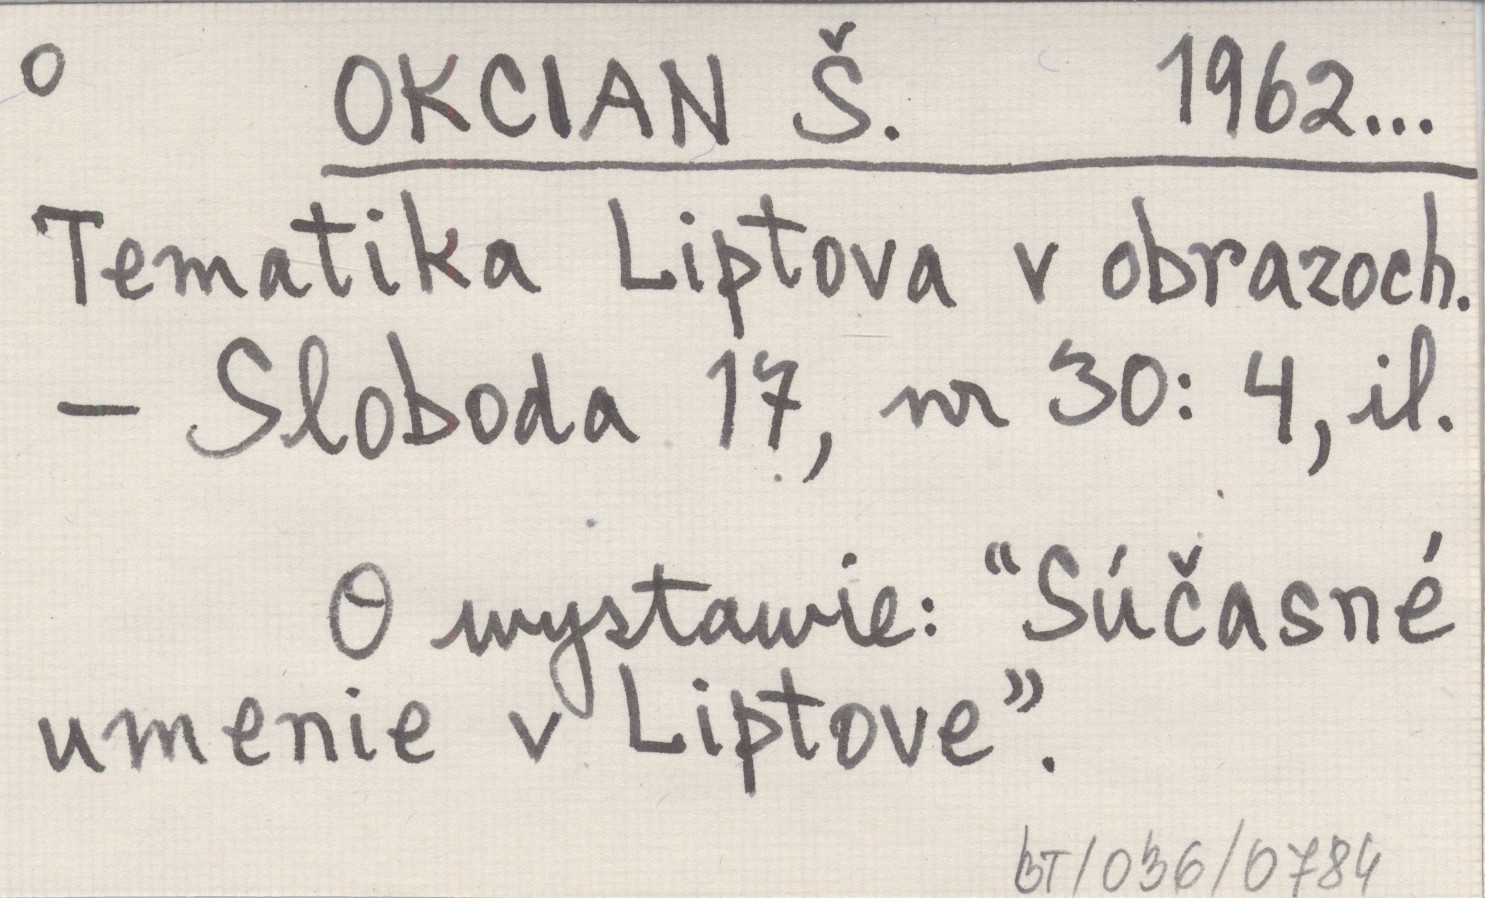 o OKCIAN Š. 1962...
Tematika Liptova v obrazoch.
— Sloboda 17, nr 30: 4, il.
O wystawie: "Súčasné
umenie v Liptove".
BT/036/0784